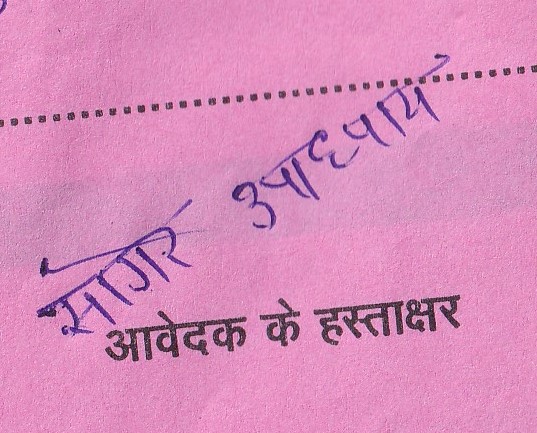 सागर उपाध्याय
आवेदक के हस्ताक्षर